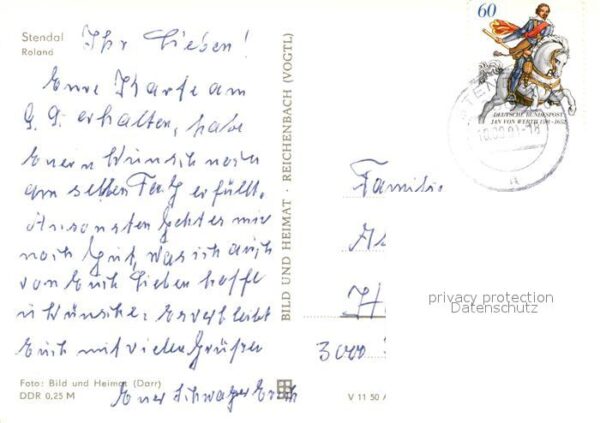 Stendal
Roland
Ihr Lieben!
Eure Karte am
9. 9. erhalten, habe
Euern Wunsch noch
am selben Tag erfüllt.
Ansonsten geht es mir
noch Gut, was ich auch
von Euch Lieben hoffe
u Wünsche. Es verbleibt
Euch mit vielen Grüßen
Euer Schwager Erich
Foto: Bild und Heimat (Darr)
DDR 0,25 M
BILD UND HEIMAT · REICHENBACH (VOGTL)
V 11 50
60
DEUTSCHE BUNDESPOST
JAN VON WERTH 1591-1652
Familie
3000
privacy protection
Datenschutz